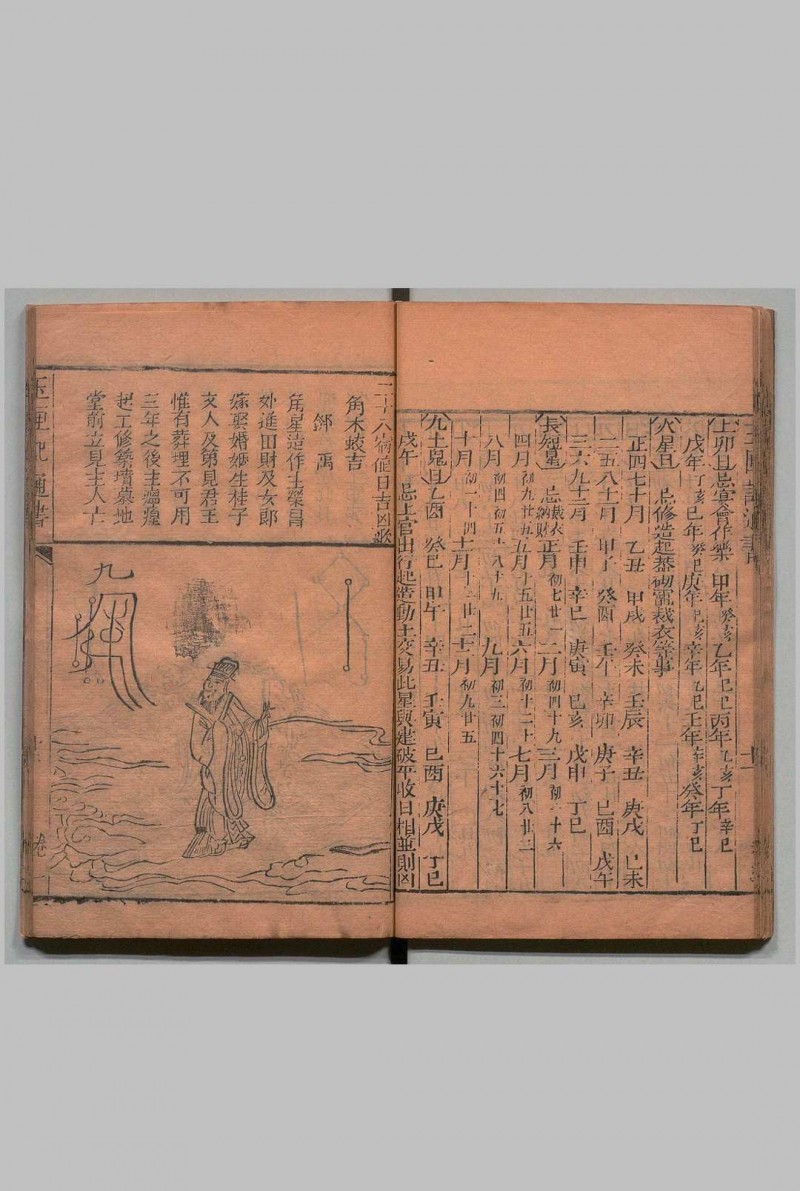 上卯日忌宴會作樂 甲年癸亥 乙年乙巳 丙年乙亥 丁年辛巳
戊年丁亥 己年癸巳 庚年己亥 辛年乙巳 壬年辛亥 癸年丁巳
火星日 忌修造起蓋砌竈裁衣等事
正四七十月 乙丑 甲戌 癸未 壬辰 辛丑 庚戌 己未
二五八十一月 甲子 癸酉 壬午 辛卯 庚子 己酉 戊午
三六九十二月 壬申 辛巳 庚寅 己亥 戊申 丁巳
長短星 忌裁衣納財 正月初七廿一 二月初四十九 三月初一十六
四月初九廿五 五月十五廿五 六月初十二十 七月初八廿二
八月初四初五十八十九 九月初三初四十六十七
十月初一十四 十一月十二廿二 十二月初九廿五
九土鬼日 乙酉 癸巳 甲午 辛丑 壬寅 己酉 庚戌 丁巳
戊午 忌上官出行起造動土交易此星與建破平收日相並則凶
二十八宿值日吉凶歌
角木蛟吉
鄧禹
角星造作主榮昌
外進田財及女郎
嫁娶婚姻生桂子
文人及第見君王
惟有葬埋不可用
三年之後主瘟瘟
起工修築墳墓地
堂前立見主人亡
九
玉匣記通書
卷